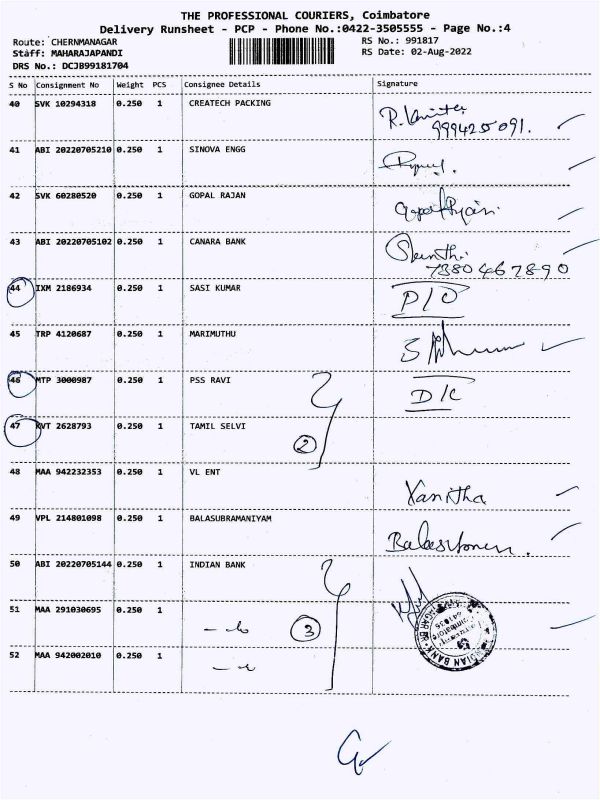 THE PROFESSIONAL COURIERS, Coimbatore
Delivery Runsheet - PCP - Phone No.:0422-3505555 - Page No.:4
Route: CHERNMANAGAR
RS No.: 991817
Staff: MAHARAJAPANDI
RS Date: 02-Aug-2022
DRS No.: DCJB99181704
S No Consignment No Weight PCS Consignee Details Signature
40 SVK 10294318 0.250 1 CREATECH PACKING
41 ABI 20220705210 0.250 1 SINOVA ENGG
42 SVK 60280520 0.250 1 GOPAL RAJAN
43 ABI 20220705102 0.250 1 CANARA BANK
7380467890
44 IXM 2186934 0.250 1 SASI KUMAR D/C
45 TRP 4120687 0.250 1 MARIMUTHU
46 MTP 3000987 0.250 1 PSS RAVI D/C
47 RVT 2628793 0.250 1 TAMIL SELVI
2
48 MAA 942232353 0.250 1 VL ENT
49 VPL 214801098 0.250 1 BALASUBRAMANIYAM
50 ABI 20220705144 0.250 1 INDIAN BANK
51 MAA 291030695 0.250 1
3
52 MAA 942002010 0.250 1